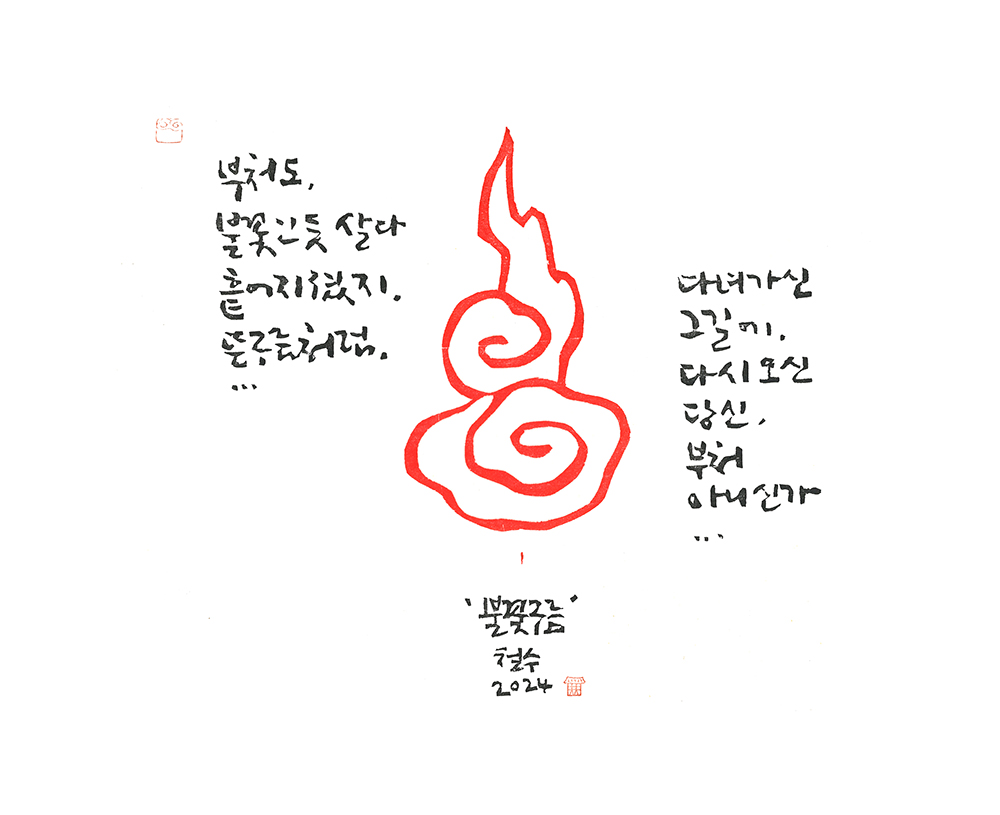 부처도,
불꽃인듯 살다
흩어지셨지.
뜬구름처럼.
...
다녀가신
그길에,
다시오신
당신,
부처
아니신가
...
'불꽃구름'
철수
2024